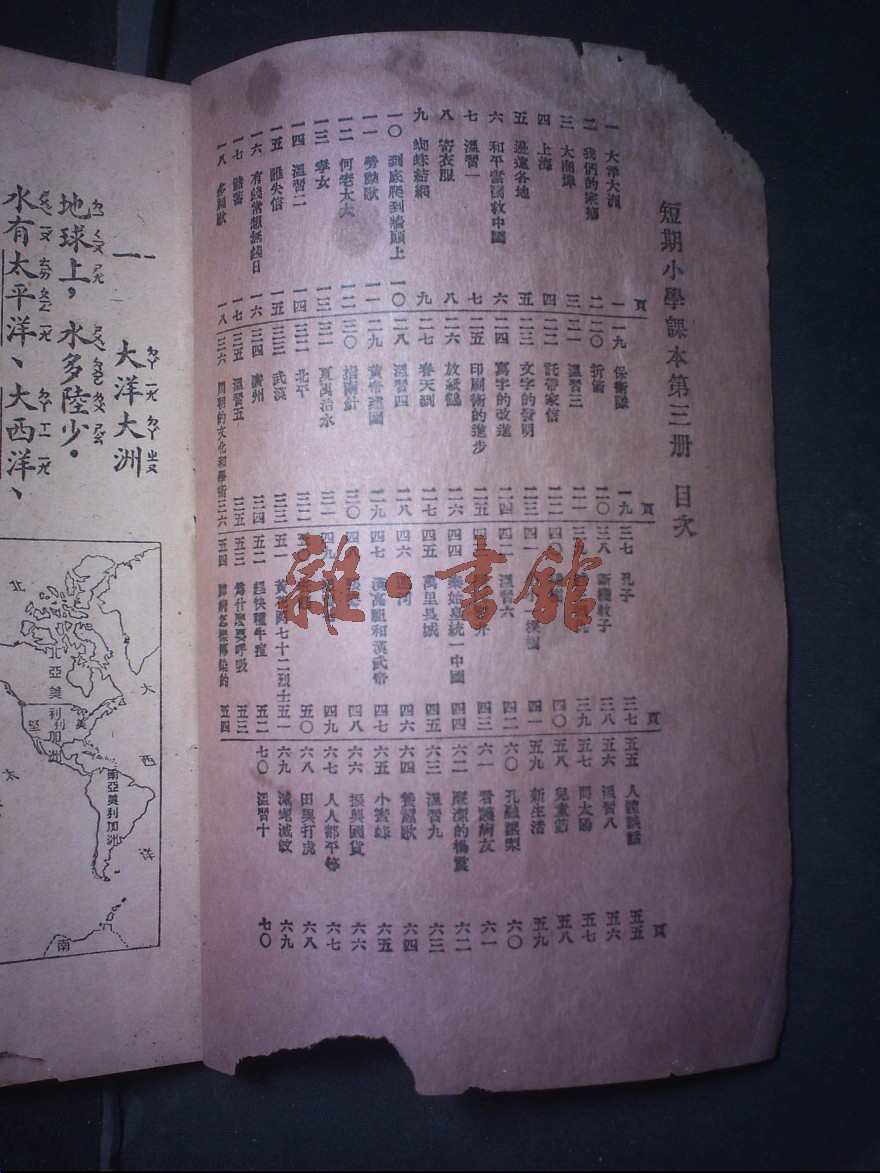 短期小學課本第三册 目次
頁
一 大洋大洲 一
二 我們的家鄉 二
三 大商埠 三
四 上海 四
五 邊遠各地 五
六 和平當國救中國 六
七 溫習一 七
八 寄衣服 八
九 蜘蛛結網 九
一〇 到底爬到牆頭上 一〇
一一 勞動歌 一一
一二 何老太太 一二
一三 孝女 一三
一四 溫習二 一四
一五 誰失信 一五
一六 有錢常想無錢日 一六
一七 儲蓄 一七
一八 一八
頁
一九 保衞隊 一九
二〇 折箭 二〇
二一 溫習三 二一
二二 託帶家信 二二
二三 文字的發明 二三
二四 寫字的改進 二四
二五 印刷術的進步 二五
二六 放紙鷂 二六
二七 春天到 二七
二八 溫習四 二八
二九 黃帝建國 二九
三〇 指南針 三〇
三一 夏禹治水 三一
三二 北平 三二
三三 武漢 三三
三四 廣州 三四
三五 溫習五 三五
三六 周朝的文化和學術 三六
頁
三七 孔子 三七
三八 斷機敎子 三八
三九
四〇
四一 一棵樹 四一
四二 溫習六 四二
四三
四四 秦始皇統一中國 四四
四五 萬里長城 四五
四六 運河 四六
四七 漢高祖和漢武帝 四七
四八
四九
五〇
五一 黃花岡七十二烈士 五一
五二 趕快種牛痘 五二
五三 爲什麼要呼吸 五三
五四 肺病怎樣傳染的 五四
頁
五五 人體談話 五五
五六 溫習八 五六
五七 問太陽 五七
五八 兒童節 五八
五九 新生活 五九
六〇 孔融讓梨 六〇
六一 看護病友 六一
六二 廉潔的楊震 六二
六三 溫習九 六三
六四 養蠶歌 六四
六五 小蜜蜂 六五
六六 振興國貨 六六
六七 人人都平等 六七
六八 田興打虎 六八
六九 滅蠅滅蚊 六九
七〇 溫習十 七〇
雜·書館
一
大洋大洲
ㄉㄚ ㄧㄤ ㄉㄚ ㄓㄡ
地球上，水多陸少。
水有太平洋、大西洋、
北
北亞美利加洲
美利堅
南亞美利加洲
大西洋
太
南